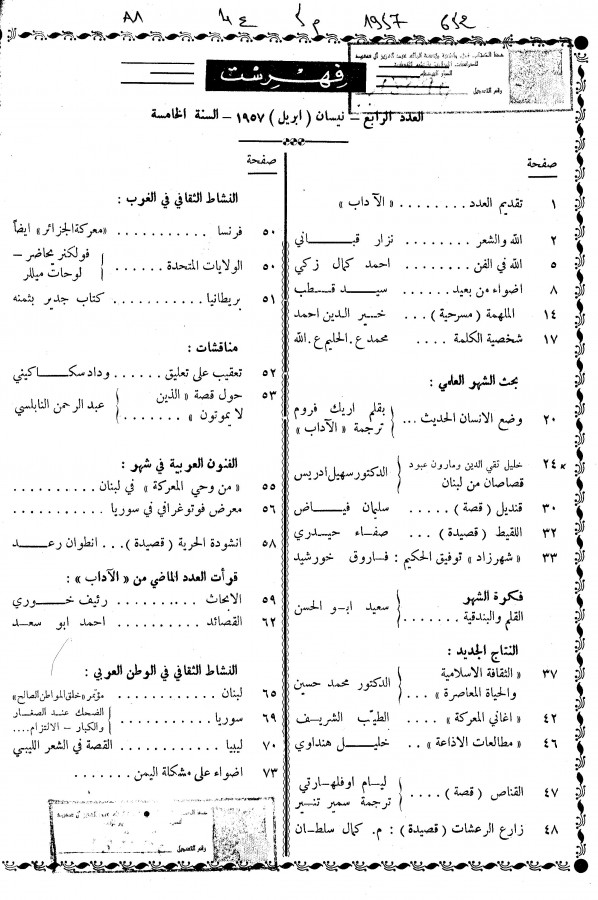 ٨١ ٤٤ م ١٩٥٧ ٤
فهرست
العدد الرابع - نيسان (ابريل) ١٩٥٧ - السنة الخامسة
صفحة
١ تقديم العدد . . . . . . . . «الآداب»
٢ الله والشعر . . . . . . . نزار قبـــاني
٥ الله في الفن . . . . . . . احمد كمال زكي
٨ اضواء من بعيد . . . . . . سيد قــطب
١٤ الملهمة (مسرحية) . . . خير الدين احمد
١٧ شخصية الكلمة . . . . محمد ع.الحليم ع.الله
بحث الشهر العلمي :
٢٠ وضع الانسان الحديث . . . { بقلم اريك فروم
ترجمة «الآداب»
٢٤ خليل تقي الدين ومارون عبود
قصاصان من لبنان { الدكتور سهيل ادريس
٣٠ قنديل (قصة) . . . . . . سليمان فيــاض
٣٢ اللقيط (قصيدة) . . . صفــاء حيــدري
٣٣ «شهرزاد» توفيق الحكيم : فــاروق خورشيد
فكرة الشهر
القلم والبندقية . . . . . . . { سعيد ابـو الحسن
النتاج الجديد :
٣٧ «الثقافة الاسلامية
والحياة المعاصرة» . . . { الدكتور محمد حسين
٤٢ «اغاني المعركة» . . . . . الطيّب الشريــف
٤٦ «مطالعات الاذاعة» . . خليــل هنداوي
٤٧ القناص (قصة) . . . . . { ليــام اوفلهــارتي
ترجمة سمير تنــير
٤٨ زارع الرعشات (قصيدة) : م. كمال سلطــان
صفحة
النشاط الثقافي في الغرب :
٥٠ فرنسا . . . . . . . . . . «معركة الجزائر» ايضاً
٥٠ الولايات المتحدة . . . . . { فولكنر محاضر -
لوحات ميللر
٥١ بريطانيا . . . . . . . . . . كتاب جدير بثمنه
مناقشات :
٥٢ تعقيب على تعليق . . . . . . وداد سكــاكيني
٥٣ حول قصة «الذين
لا يموتون» . . . . . . . { عبد الرحمن النابلسي
الفنون العربية في شهر :
٥٥ «من وحي المعركة» في لبنان . . . . . . . . . .
٥٦ معرض فوتوغرافي في سوريا . . . . . . . . . .
٥٨ انشودة الحرية (قصيدة) . . . انطوان رعــد
قرأت العدد الماضي من «الآداب» :
٥٩ الابحاث . . . . . . . . . رئيف خــوري
٦٢ القصائد . . . . . . . . . احمد ابو سعــد
النشاط الثقافي في الوطن العربي :
٦٥ لبنان . . . . . . . . . . مؤتمر «خلق المواطن الصالح»
٦٩ سوريا . . . . . . . . . . { الضحك عنــد الصغــار
والكبار - الالتزام....
٧٠ ليبيا . . . . . . . . . . القصة في الشعر الليبي
٧٣ اضواء على مشكلة اليمن . . . . . . .
رقم التسجيل